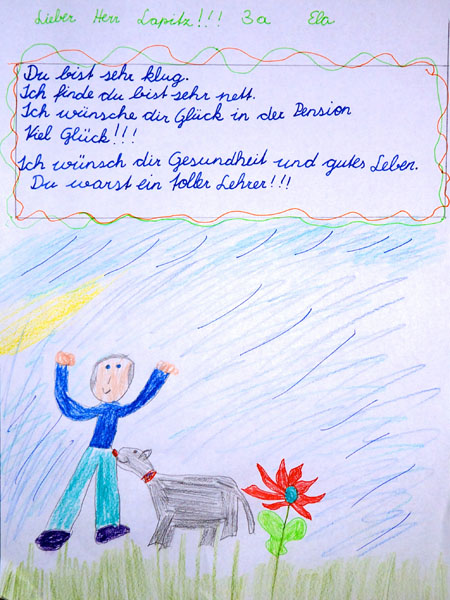 Lieber Herr Lapitz!!! 3a Ela
Du bist sehr klug.
Ich finde du bist sehr nett.
Ich wünsche dir Glück in der Pension
Viel Glück!!!
Ich wünsch dir Gesundheit und gutes Leben.
Du warst ein toller Lehrer!!!